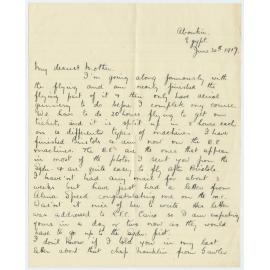 Aboukir
Egypt.
June 20th 1917.
My dearest Mother.
I'm going along famously with
the flying and am nearly finished the
flying part of it & then only have aerial
gunnery to do before I complete my course.
We have to do 20 hours flying to get our
tickets, and it is split up in 5 hours each
on 4 different types of machines. I have
finished Bristols & am now on the B.E.
machines. The B.E's are the ones that appear
in most of the photos I sent you from the
& are quite easy to fly after Bristols.
I haven't had any mail for about 3
weeks but have just had a letter from
Speed congratulating me on the
Wasn't it nice of her to write. Her letter
was addressed to R.F.C. Cairo so I am expecting
yours in a day or two now as they would
have to go up to the first.
I don't know if I told you in my last
letter about that chap Franklin from Gawler